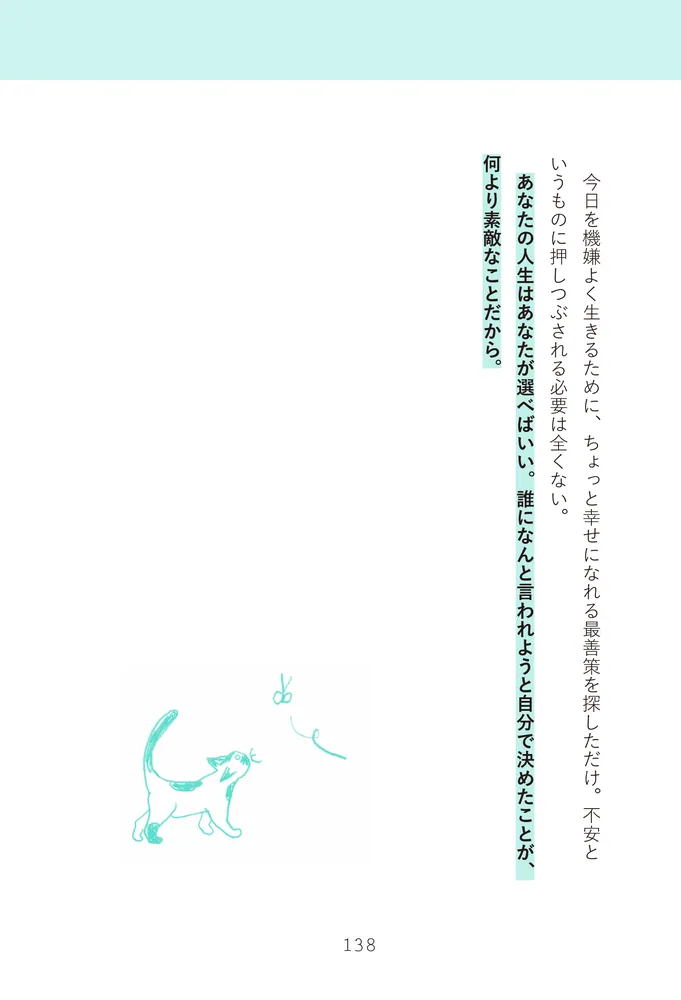 今日を機嫌よく生きるために、ちょっと幸せになれる最善策を探しただけ。不安と
いうものに押しつぶされる必要は全くない。
あなたの人生はあなたが選べばいい。誰になんと言われようと自分で決めたことが、
何より素敵なことだから。
138